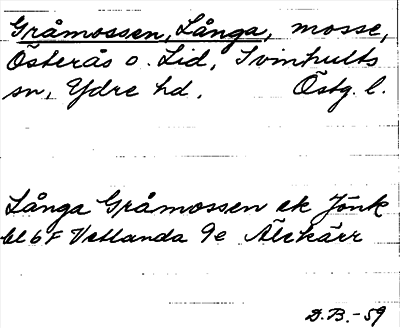 Gråmossen, Långa, mosse,
Österås o. Lid, Svinhults
sn, Ydre hd. Östg. l.
Långa Gråmossen ek Jönk
bl 6 F Vetlanda 9e Älekärr
D.B.-59